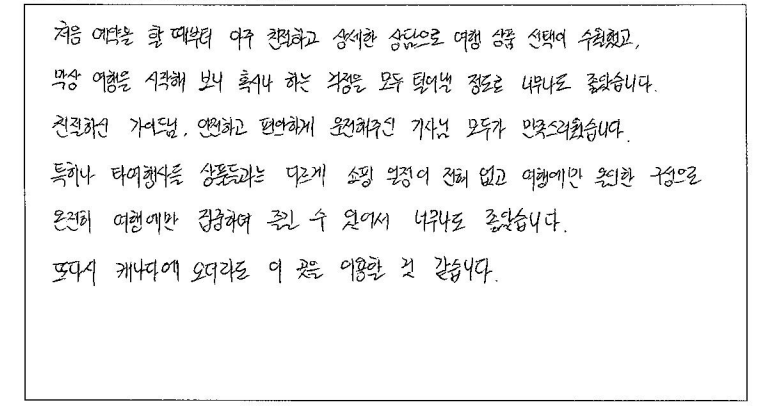 처음 예약을 할 때부터 아주 친절하고 상세한 상담으로 여행 상품 선택이 수월했고,
막상 여행을 시작해 보니 혹시나 하는 걱정을 모두 털어낼 정도로 너무나도 좋았습니다.
친절하신 가이드님, 안전하고 편안하게 운전해주신 기사님 모두가 만족스러웠습니다.
특히나 타여행사들 상품들과는 다르게 쇼핑 일정이 전혀 없고 여행에만 올인한 구성으로
온전히 여행에만 집중하여 즐길 수 있어서 너무나도 좋았습니다.
또다시 캐나다에 오더라도 이 곳을 이용할 것 같습니다.